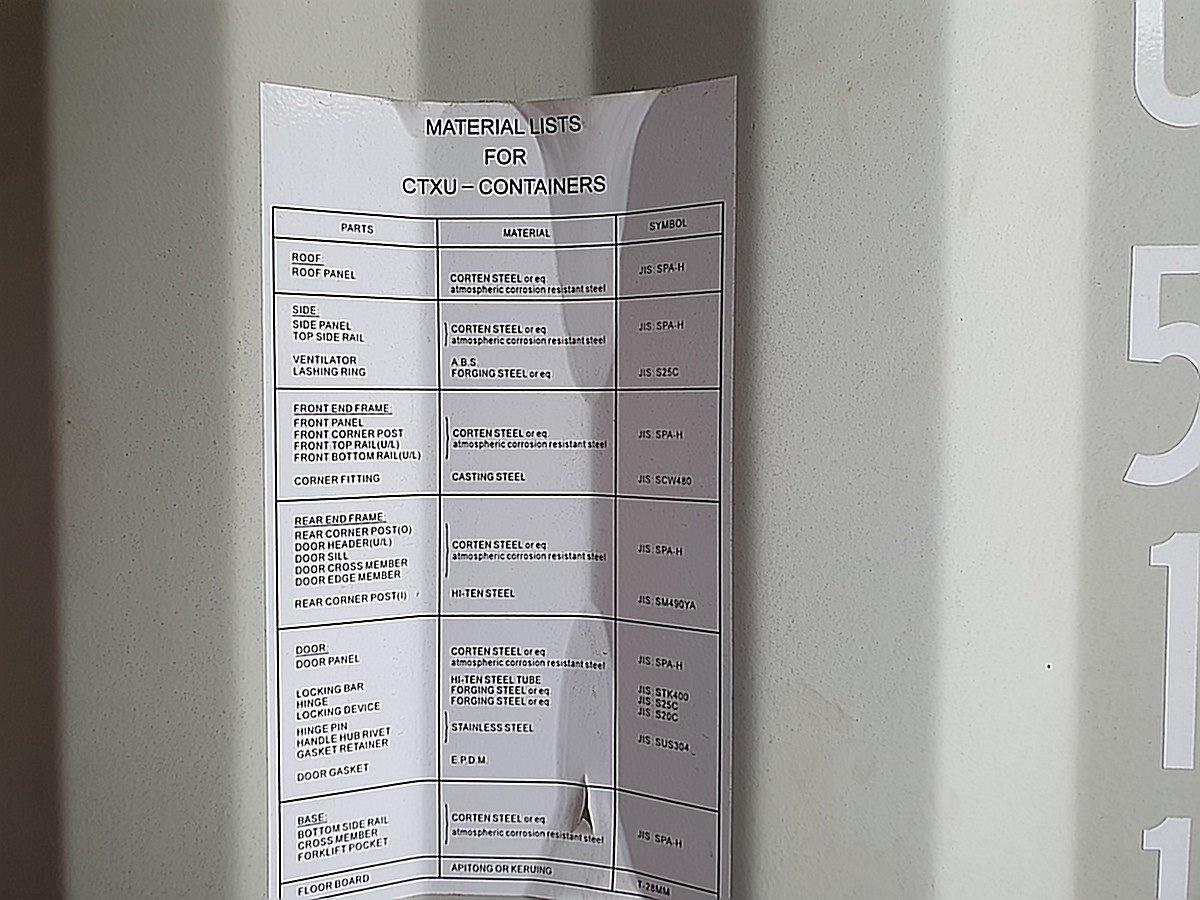 MATERIAL LISTS
FOR
CTXU – CONTAINERS
PARTS MATERIAL SYMBOL
ROOF:
ROOF PANEL CORTEN STEEL or eq JIS: SPA-H
atmospheric corrosion resistant steel
SIDE:
SIDE PANEL CORTEN STEEL or eq JIS: SPA-H
TOP SIDE RAIL atmospheric corrosion resistant steel
VENTILATOR A.B.S.
LASHING RING FORGING STEEL or eq JIS: S25C
FRONT END FRAME:
FRONT PANEL
FRONT CORNER POST CORTEN STEEL or eq JIS: SPA-H
FRONT TOP RAIL(U/L) atmospheric corrosion resistant steel
FRONT BOTTOM RAIL(U/L)
CORNER FITTING CASTING STEEL JIS: SCW480
REAR END FRAME:
REAR CORNER POST(O)
DOOR HEADER(U/L) CORTEN STEEL or eq JIS: SPA-H
DOOR SILL atmospheric corrosion resistant steel
DOOR CROSS MEMBER
DOOR EDGE MEMBER
REAR CORNER POST(I) HI-TEN STEEL JIS: SM490YA
DOOR:
DOOR PANEL CORTEN STEEL or eq JIS: SPA-H
atmospheric corrosion resistant steel
LOCKING BAR HI-TEN STEEL TUBE JIS: STK400
HINGE FORGING STEEL or eq JIS: S25C
LOCKING DEVICE FORGING STEEL or eq JIS: S20C
HINGE PIN
HANDLE HUB RIVET STAINLESS STEEL JIS: SUS304
GASKET RETAINER
DOOR GASKET E.P.D.M.
BASE:
BOTTOM SIDE RAIL CORTEN STEEL or eq JIS: SPA-H
CROSS MEMBER atmospheric corrosion resistant steel
FORKLIFT POCKET
FLOOR BOARD APITONG OR KERUING T-28MM
5
1
1